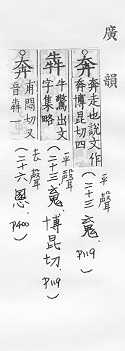 廣韻
奔 奔走也說文作
奔博昆切四
平聲
(二十三)魂. P119)
犇 牛驚出文
字集略
平聲
(二十三)魂. 博昆切. P119)
奔 甫悶切又
音犇一
去聲
(二十六)慁. P400)